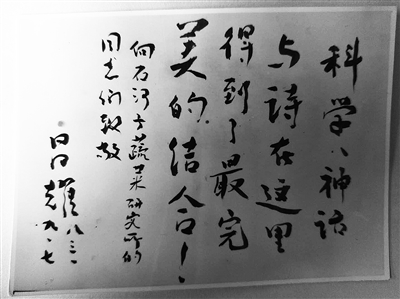 科学、神话
与诗在这里
得到了最完
美的结合！
向石河子蔬菜研究所的
同志们致敬